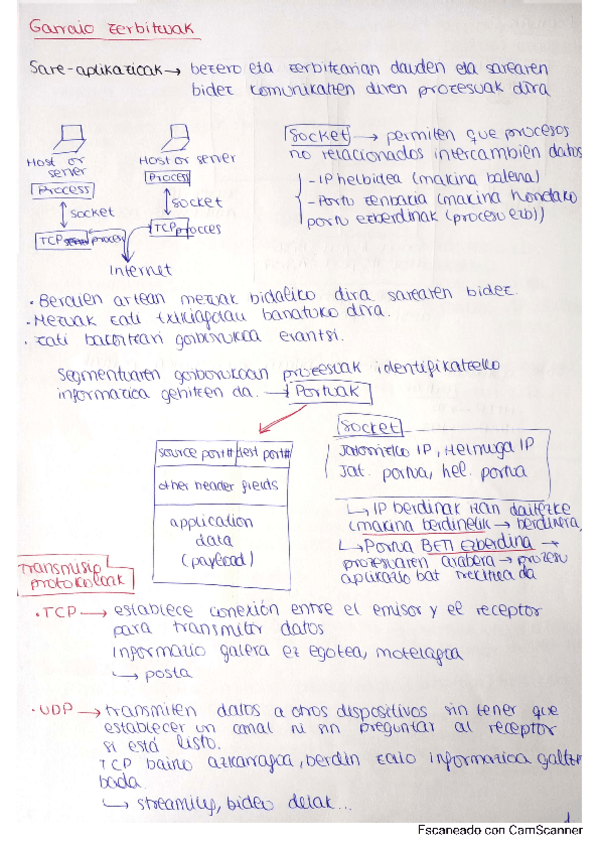 Garraio zerbitzuak
Sare-aplikazioak → bezero eta zerbitzarian dauden eta sarearen
bidez komunikatzen diren prozesuak dira
Host or server
Process
socket
TCP process
Host or server
Process
socket
TCP process
Internet
Socket → permiten que procesos
no relacionados intercambien datos
- IP helbidea (makina bakena)
- Portu zenbakia (makina horretako
portu ezberdinak (prozesu ezb))
· Berauen artean mezuak bidaliko dira sarearen bidez.
· Mezuak zati txikiagotan banatuko dira.
· zati bakoitzari goiburukoa erantsi.
Segmentuaren goiburukoan prozesuak identifikatzeko
informazioa gehitzen da. → Portuak
source port# dest port#
other header fields
application
data
(payload)
Socket
Jatorrizko IP, Helmuga IP
Jat. portua, hel. portua
↳ IP berdinak izan daitezke
(makina berdinetik → berdinera
↳ Portua BETI ezberdina →
prozesuaren arabera → prozesu
aplikazio bat irekitzea da
Transmisio
protokoloak
· TCP → establece conexión entre el emisor y el receptor
para transmitir datos
Informazio galera ez egotea, motelagoa
↳ posta
· UDP → transmiten datos a otros dispositivos sin tener que
establecer un canal ni sin preguntar al receptor
si está listo.
TCP baino azkarragoa, berdin zaio informazioa galtzen
bada.
↳ streaming, bideo deiak...
1
Escaneado con CamScanner